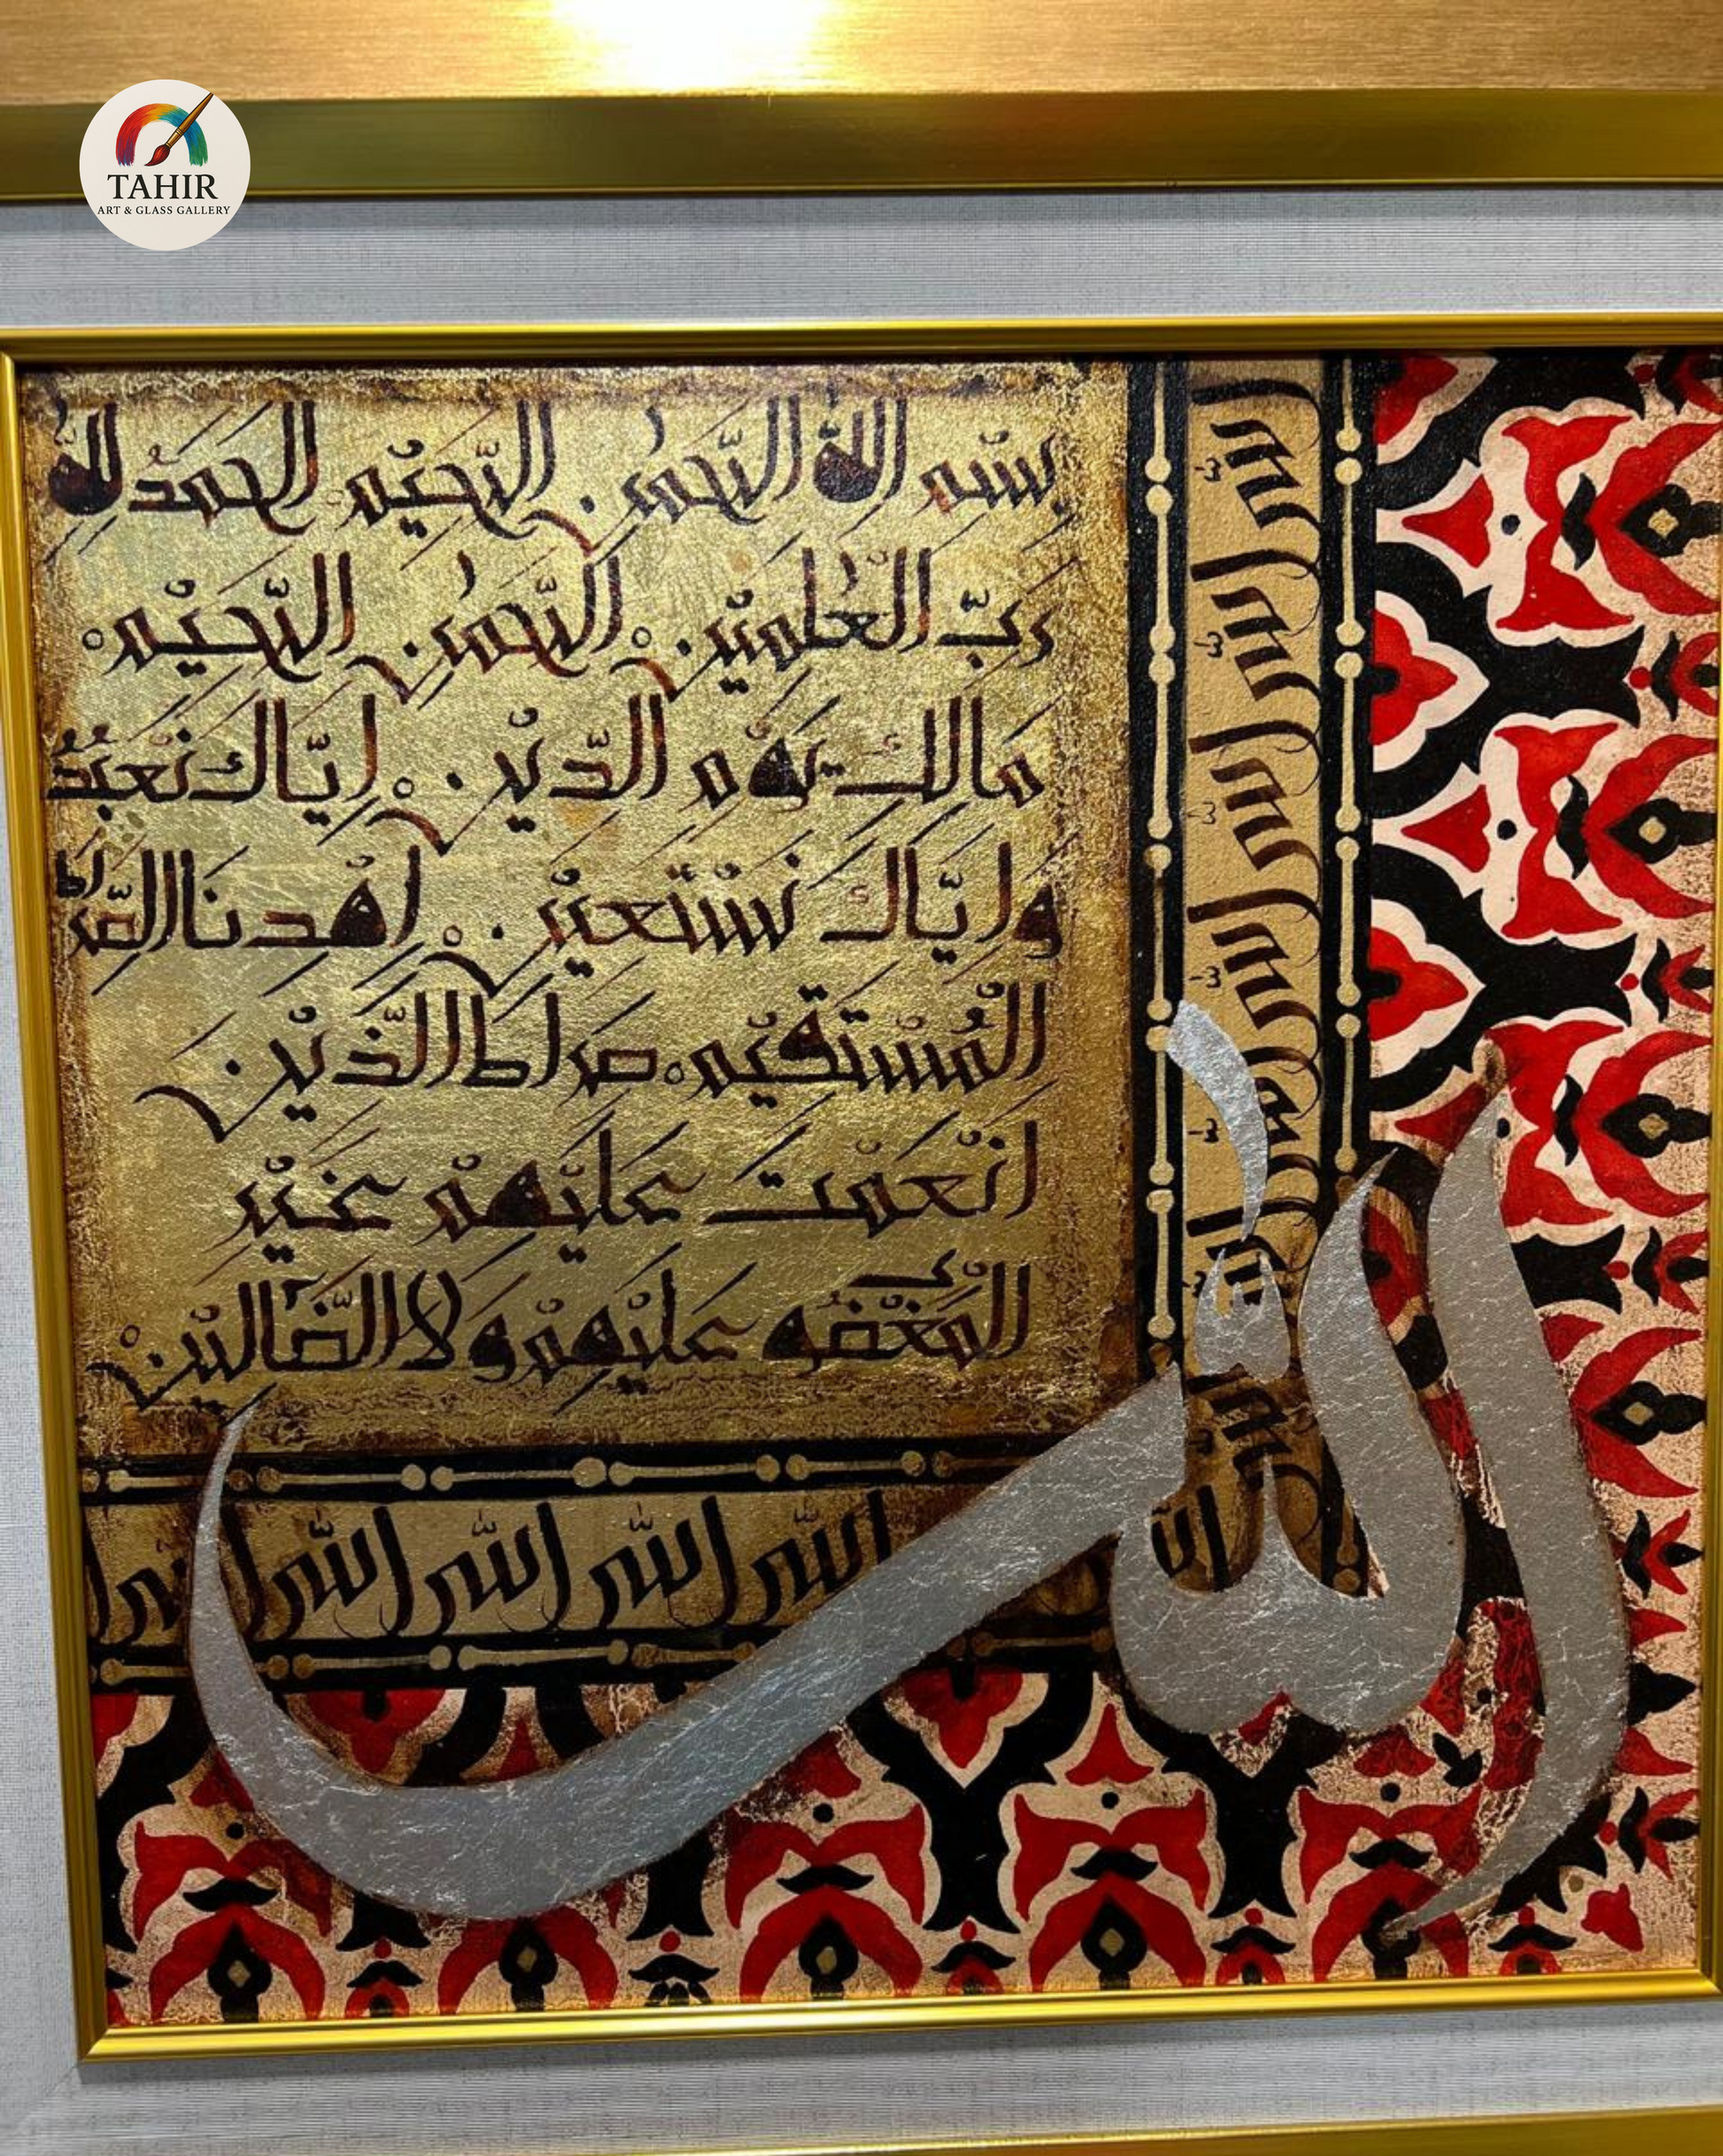 TAHIR
ART & GLASS GALLERY
بسم الله الرّحمٰن الرّحيْم الحمدُ لله
ربّ العٰلميْن الرّحمٰن الرّحيْم
مالك يوْم الدّيْن اِيّاك نعْبدُ
واِيّاك نسْتعيْن اهْدنا الصّراط
الْمُسْتقيْم صراط الّذيْن
انْعمْت عليْهمْ غيْر
الْمغْضُوب عليْهمْ ولا الضّآليْن
الله
الله الله الله الله الله الله الله
الله الله الله الله الله